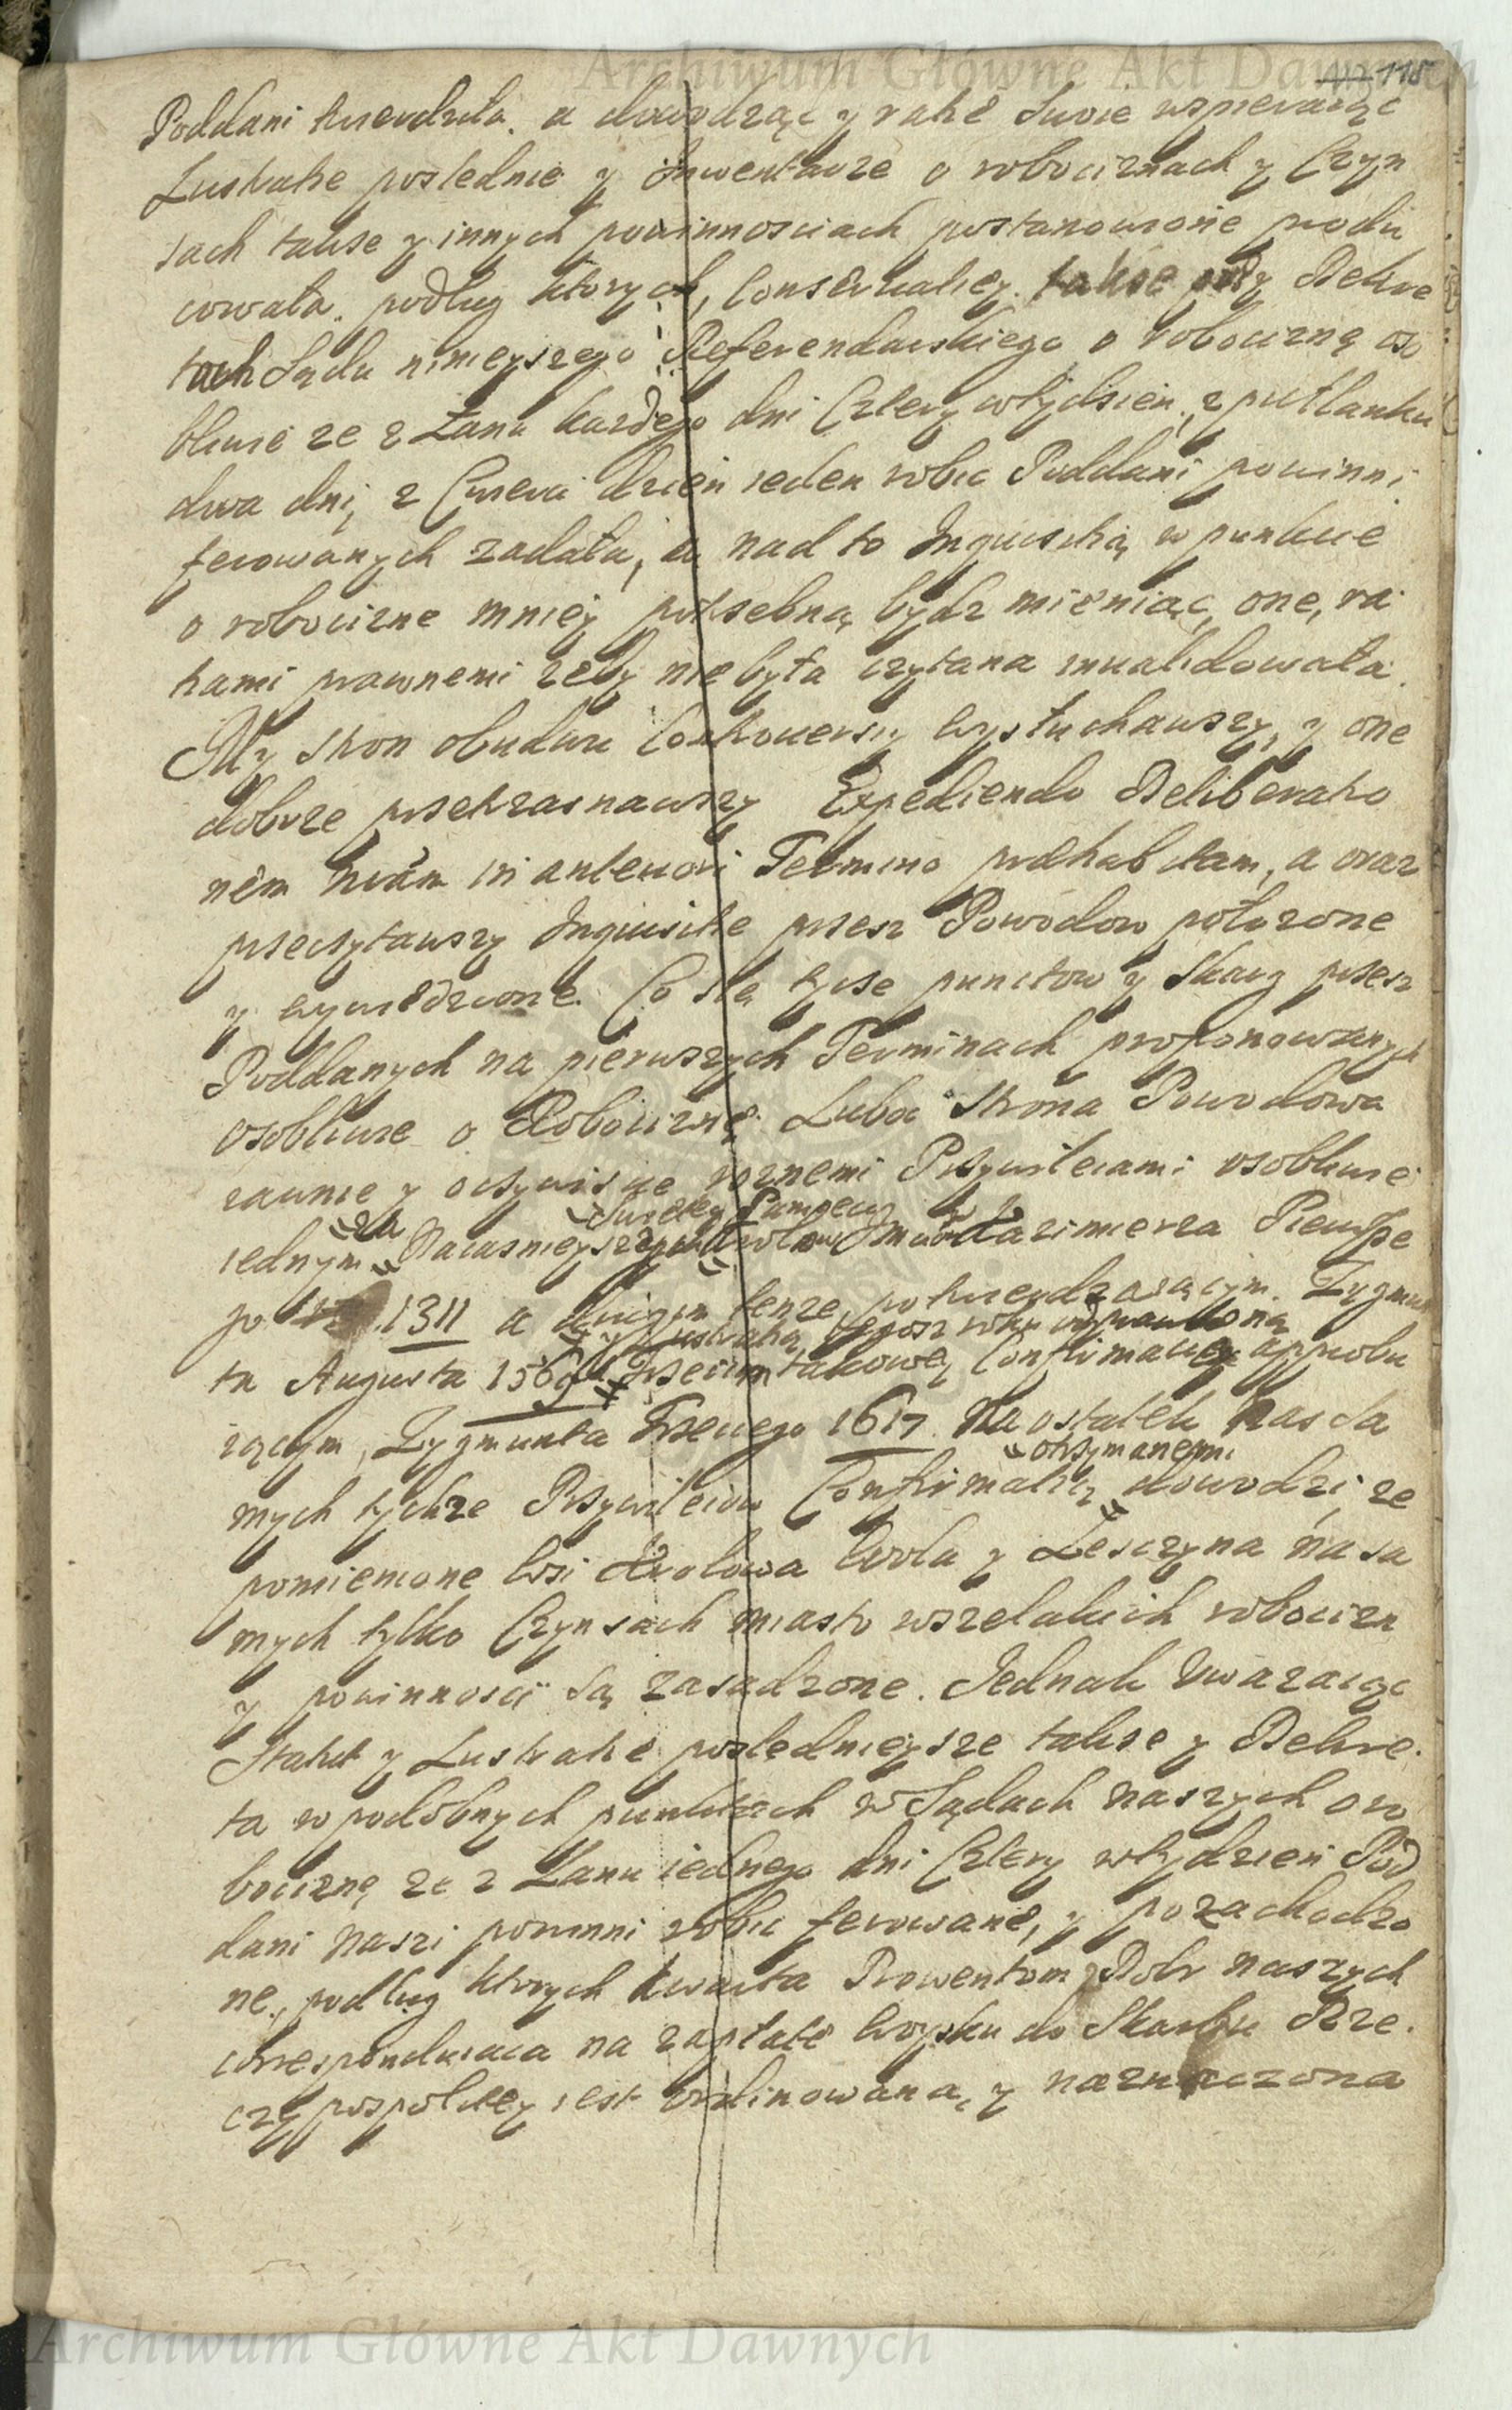 Archiwum Główne Akt Dawnych
115
Poddani twerdziła. a dowodząc y racie swoie wspieraiąc
Lustratie poslednie y Inwentarze o robociznach y Czyn
sach takse y innych powinnosciach postanowione produ
cowała. podług ktorych, Conserwatiey. takse przy Dekre
tach Sądu ninieyszego Referendarskiego o robociznę oso
bliwie ze z Łanu kazdego dni Cztery w tydzien, z pułłanku
dwa dni, z Cwierci dzien ieden robic Poddani powinni
ferowanych ządała, a nad to Inquisitią w punkcie
o robocizne mniey potrzebną bydz mieniąc, one, ra
tiami prawnemi zeby nie była czytana inualidowała.
My stron obudwu Controuersiy wysłuchawszy, y one
dobrze przetrzasnawszy Expediendo Deliberatio
nem suam in anteriori Termino præhabitam, a oraz
przeczytawszy Inquisitie przez Powodow połozone
y wywiedzione. Co się tycze punctow y skarg przez
Poddanych na pierwszych Terminach proponowanych
osobliwie o Robociznę. Luboc strona Powodowa
iawnie y oczywiscie roznemi Przywileiami osobliwie
Swiętey Pamięci
iednym za Naiasnieyszych Krolow Kazimierza Pierwsze
go 1311 a drugim tenze potwierdzaiącym. Zygmun
y Lustratią tegosz roku odprawioną
ta Augusta 1569 Trzecim takowey Confirmatiey approbu
iącym, Zygmunta Trzeciego 1617. Na ostatek Nas Sa
otrzymanemi
mych tychze Przywileiow Confirmatią dowodzi, ze
pomienione Wsi Krolowa Wola y Lesczyna na sa
mych tylko Czynsach miasto wszelakich robocizn
y powinnosci są zasadzone. Jednak Uwazaiąc
Statut y Lustratie poslednieysze takse y Dekre
ta w podobnych punktach w Sądach naszych o ro
bociznę ze z Łanu iednego dni Cztery w tydzien Pod
dani naszi powinni robic ferowane, y pozachodzo
ne, podług ktorych kwarta Prowentom Dobr naszych
corresponduiąca na zapłatę Woysku do Skarbu Rze
czy pospolitey iest ordinowana, y naznaczona
Archiwum Główne Akt Dawnych